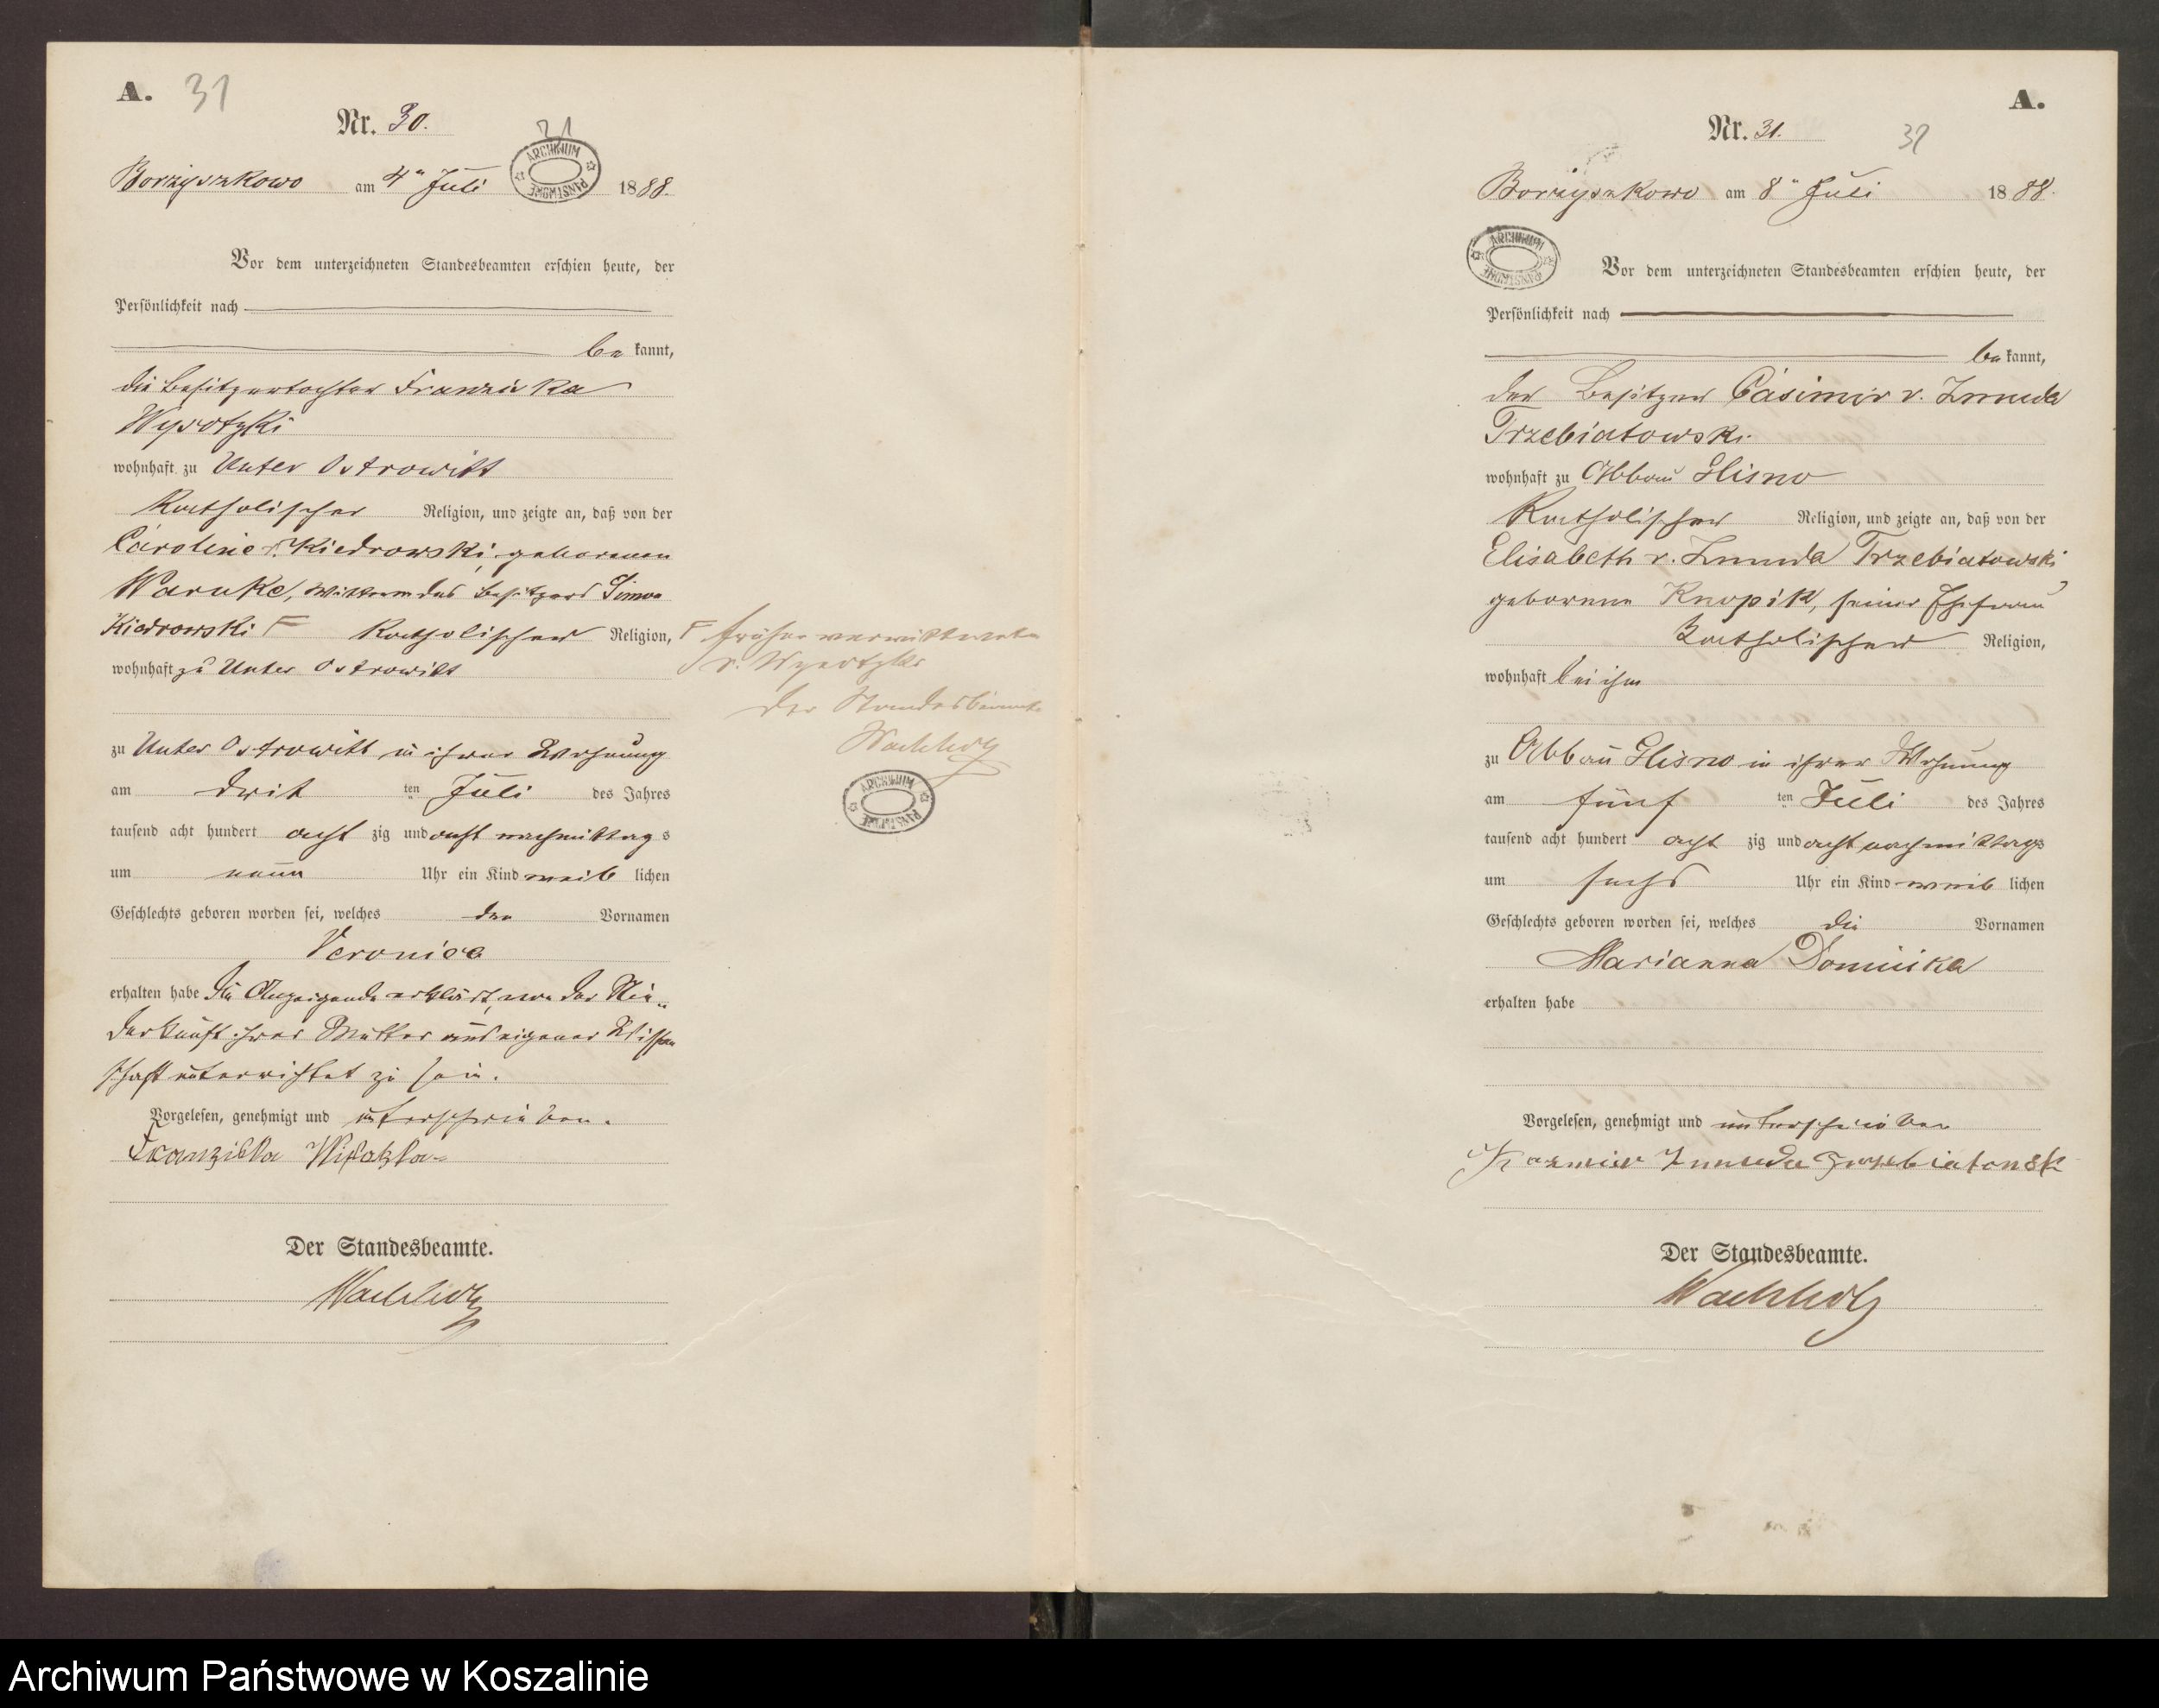 A. 31
Nr. 30.
21
ARCHIWUM PAŃSTWOWE
Borzyszkowo am 4ten Juli 1888.
Vor dem unterzeichneten Standesbeamten erschien heute, der
Persönlichkeit nach
be kannt,
die Besitzertochter Franziska
Wysotzki
wohnhaft zu Unter Ostrowitt
Katholischer Religion, und zeigte an, daß von der
Caroline v. Kiedrowski, geborenen
Warnke, Wittwe des Besitzers Simon
Kiedrowski F Katholischer Religion,
wohnhaft zu Unter Ostrowitt
zu Unter Ostrowitt in ihrer Wohnung
am dritten Juli des Jahres
tausend acht hundert acht zig und acht nachmittags
um neun Uhr ein Kind weib lichen
Geschlechts geboren worden sei, welches den Vornamen
Veronica
erhalten habe Die Anzeigende erklärt, von der Nie-
derkunft ihrer Mutter aus eigener Wissen
schaft unterrichtet zu sein.
Vorgelesen, genehmigt und unterschrieben.
Franziska
Der Standesbeamte.
Wachholz
F früher verwittwete
v. Wysotzki
Der Standesbeamte
Wachholz
ARCHIWUM PAŃSTWOWE
A.
Nr. 31.
32
Borzyszkowo am 8ten Juli 1888.
ARCHIWUM PAŃSTWOWE
Vor dem unterzeichneten Standesbeamten erschien heute, der
Persönlichkeit nach
be kannt,
der Besitzer Casimir v. Zmuda
Trzebiatowski
wohnhaft zu Abbau Glisno
Katholischer Religion, und zeigte an, daß von der
Elisabeth v. Zmuda Trzebiatowski
geborene Knopik, seiner Ehefrau
Katholischer Religion,
wohnhaft bei ihm
zu Abbau Glisno in ihrer Wohnung
am fünf ten Juli des Jahres
tausend acht hundert acht zig und acht nachmittags
um sechs Uhr ein Kind weib lichen
Geschlechts geboren worden sei, welches die Vornamen
Marianna Dominika
erhalten habe
Vorgelesen, genehmigt und unterschrieben
Kazmier Zmuda Trzebiatowsk
Der Standesbeamte.
Wachholz
Archiwum Państwowe w Koszalinie